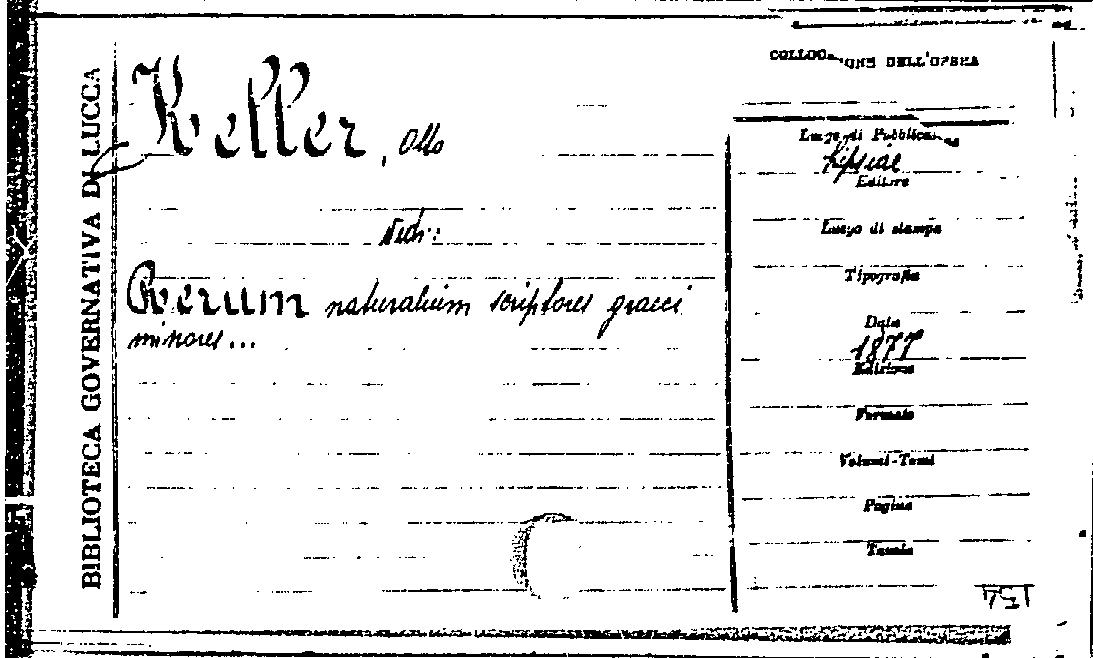 BIBLIOTECA GOVERNATIVA DI LUCCA
Keller, Otto
Vedi:
Rerum naturalium scriptores graeci
minores...
COLLOCAZIONE DELL'OPERA
Luogo di Pubblicazione
Lipsiae
Editore
Luogo di stampa
Tipografia
Data
1877
Edizione
Formato
Volumi-Tomi
Pagine
Tavole